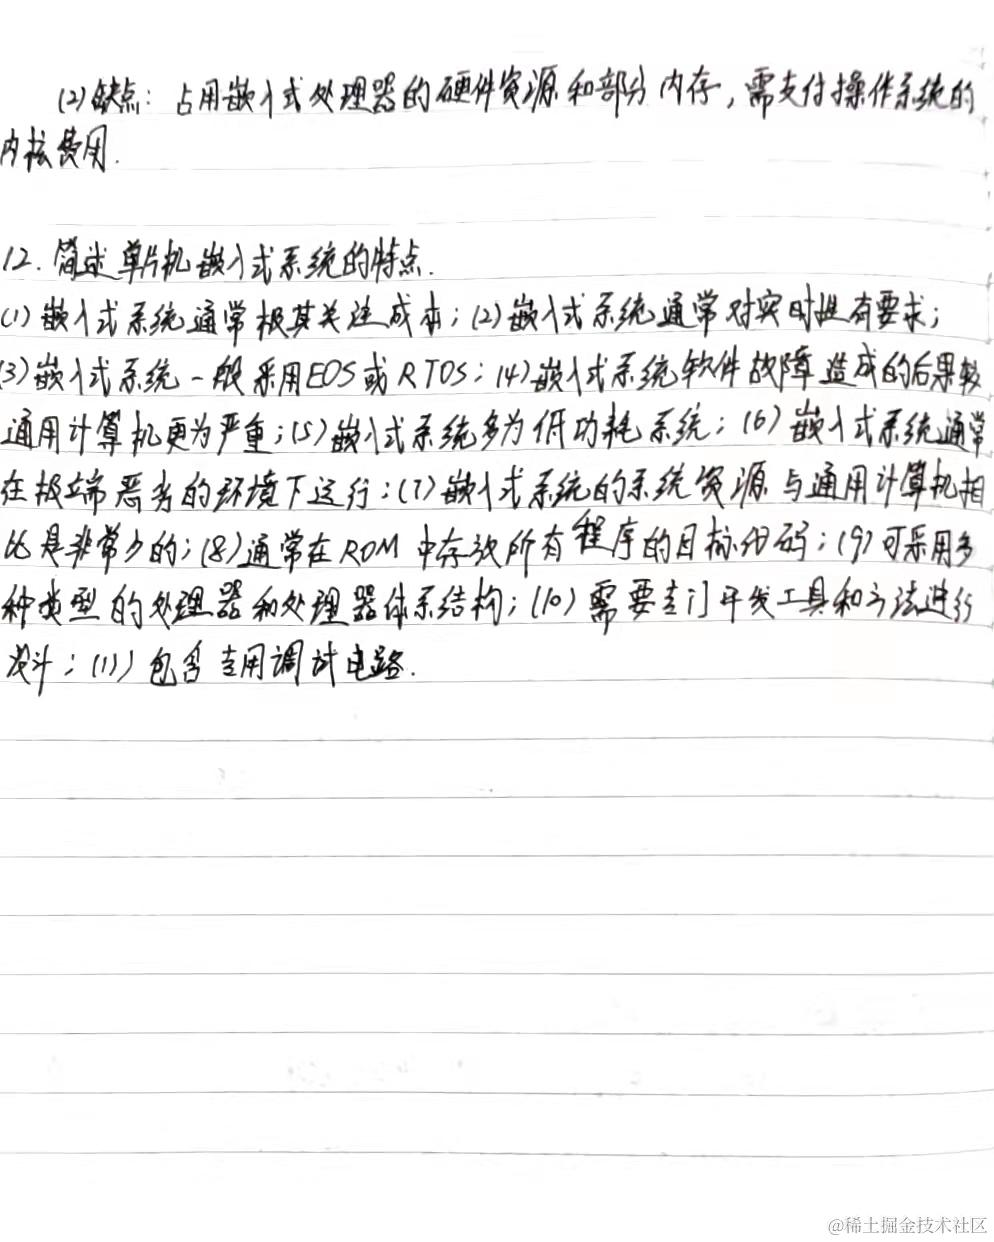 (2)缺点：占用嵌入式处理器的硬件资源和部分内存，需支付操作系统的
内核费用.
12.简述单片机嵌入式系统的特点.
(1)嵌入式系统通常极其关注成本；(2)嵌入式系统通常对实时性有要求；
(3)嵌入式系统一般采用EOS或RTOS；(4)嵌入式系统软件故障造成的后果较
通用计算机更为严重；(5)嵌入式系统多为低功耗系统；(6)嵌入式系统通常
在极端恶劣的环境下运行；(7)嵌入式系统的系统资源与通用计算机相
比是非常少的；(8)通常在ROM中存放所有程序的目标代码；(9)可采用多
种类型的处理器和处理器体系结构；(10)需要专门开发工具和方法进行
设计；(11)包含专用调试电路.
@稀土掘金技术社区